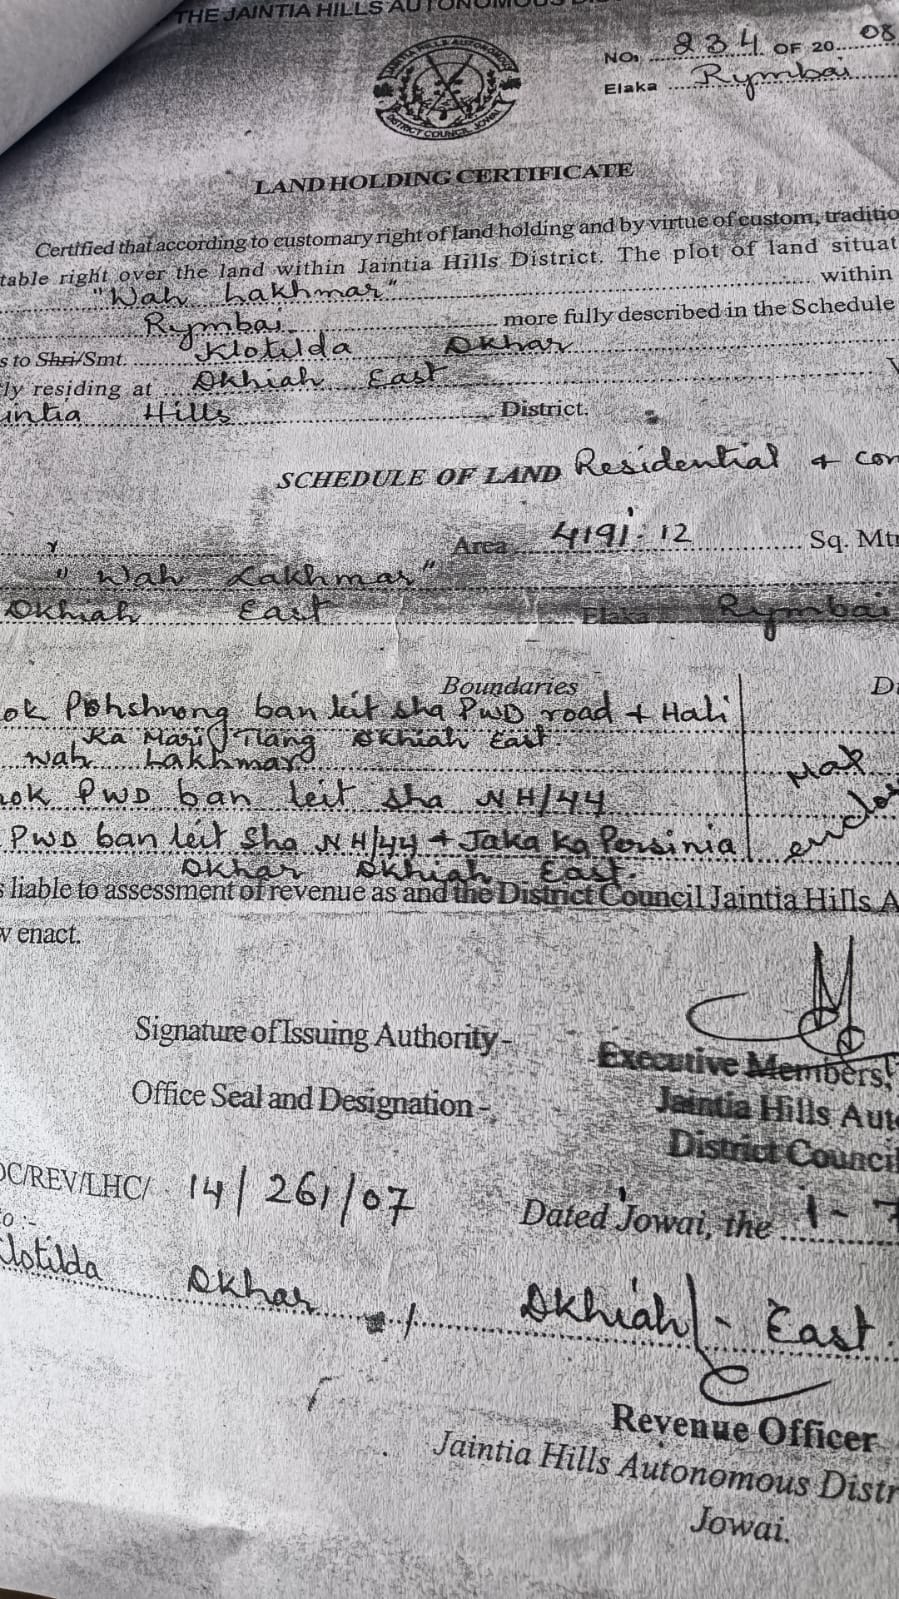 THE JAINTIA HILLS AUTONOMOUS DIS
JAINTIA HILLS AUTONOMOUS
DISTRICT COUNCIL, JOWAI
NO. 234 OF 20 08
Elaka Rymbai
LAND HOLDING CERTIFICATE
Certified that according to customary right of land holding and by virtue of custom, traditio
table right over the land within Jaintia Hills District. The plot of land situat
"Wah Lakhmar" within
Rymbai more fully described in the Schedule
s to Shri/Smt. Klotilda Dkhar
ly residing at Dkhiah East
intia Hills District.
SCHEDULE OF LAND Residential + con
Area 4191.12 Sq. Mtr
"Wah Lakhmar"
Dkhiah East Elaka Rymbai
Boundaries D
ok Pohshnong ban leit sha PWD road + Hali
Ka Mari Tlang Dkhiah East.
Wah Lakhmar
Map
hok PWD ban leit sha NH/44
PWD ban leit sha NH/44 + Jaka Ka Persinia
enclos
Dkhar Dkhiah East.
s liable to assessment of revenue as and the District Council Jaintia Hills A
y enact.
Signature of Issuing Authority -
Executive Members,
Office Seal and Designation -
Jaintia Hills Auto
District Council
DC/REV/LHC/ 14/261/07 Dated Jowai, the 1-7
o :-
Klotilda Dkhar Dkhiah - East.
Revenue Officer
Jaintia Hills Autonomous Distr
Jowai.